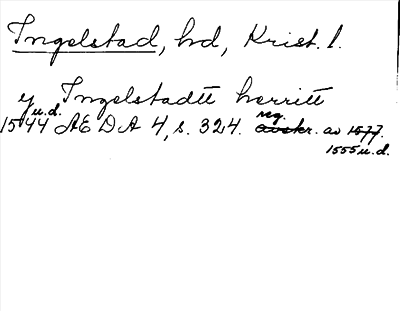 Ingelstad, hd, Krist. l.
y Ingelstadtt herritt
u.d. reg.
1544 AEDA 4, s. 324. avskr. av 1577.
1555 u.d.